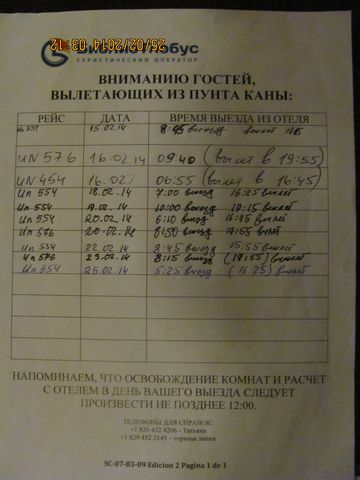 25/02/2014 03:12
БИБЛИОГЛОБУС
ТУРИСТИЧЕСКИЙ ОПЕРАТОР
ВНИМАНИЮ ГОСТЕЙ,
ВЫЛЕТАЮЩИХ ИЗ ПУНТА КАНЫ:
РЕЙС ДАТА ВРЕМЯ ВЫЕЗДА ИЗ ОТЕЛЯ
15.02.14 выезд вылет
UN 576 16.02.14 09:40 (вылет в 19:55)
UN 454 16.02 06:55 (вылет в 16:45)
Ип 554 18.02.14 7:00 выезд 16:25 вылет
Ип 554 19.02.14 10:00 выезд 19:15 вылет
Ип 554 20.02.14 6:10 выезд 16:45 вылет
Ип 576 20.02.14 выезд 19:55 вылет
Ип 554 22.02.14 8:45 выезд 15:55 вылет
Ип 576 23.02.14 8:15 выезд (19:55) вылет
Ип 554 25.02.14 5:25 выезд (16:25) вылет
НАПОМИНАЕМ, ЧТО ОСВОБОЖДЕНИЕ КОМНАТ И РАСЧЕТ
С ОТЕЛЕМ В ДЕНЬ ВАШЕГО ВЫЕЗДА СЛЕДУЕТ
ПРОИЗВЕСТИ НЕ ПОЗДНЕЕ 12:00.
ТЕЛЕФОНЫ ДЛЯ СПРАВОК:
+1 829 452 4206 - Татьяна
+1 829 452 2145 – горячая линия
SC-07-03-09 Edicion 2 Pagina 1 de 1